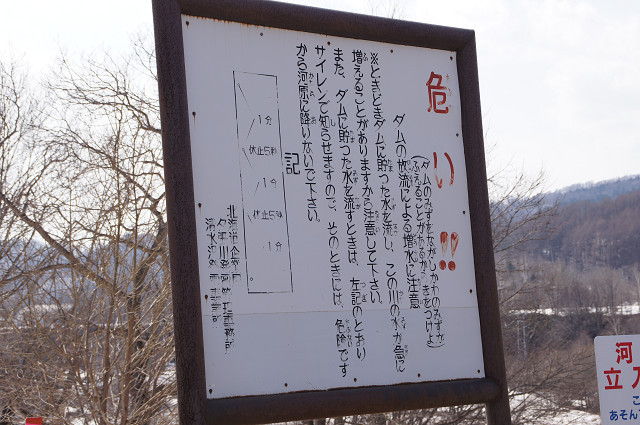 危い!!
(ダムのみずをながしかわのみずが
ふえることがあるからきをつけよう)
ダムの放流による増水に注意
※ときどきダムに貯つた水を流し、この川の水が急に
増えることがありますから注意して下さい。
また、ダムに貯つた水を流すときは、左記のとおり
サイレンで知らせますので、そのときには、危険です
から河原に降りないで下さい。
記
1分
休止5秒
1分
休止5秒
1分
河
立
あそん